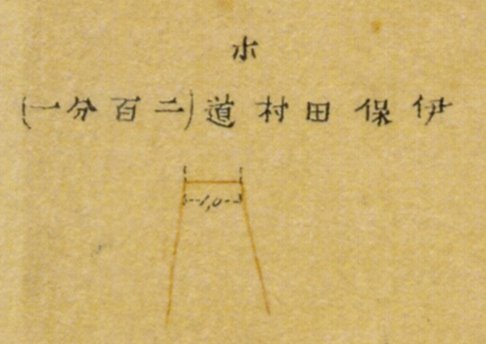 水
伊保田村道(二百分一)
1,0